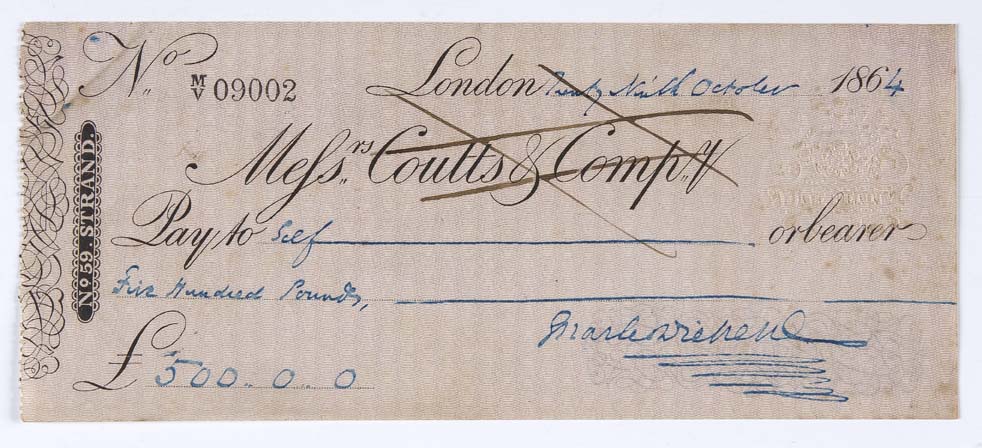 No. M/V 09002 London Twenty Ninth October 1864
Messrs. Coutts & Compy.
No. 59. STRAND.
Pay to Self or bearer
Five Hundred Pounds,
Charles Dickens
£ 500..0..0